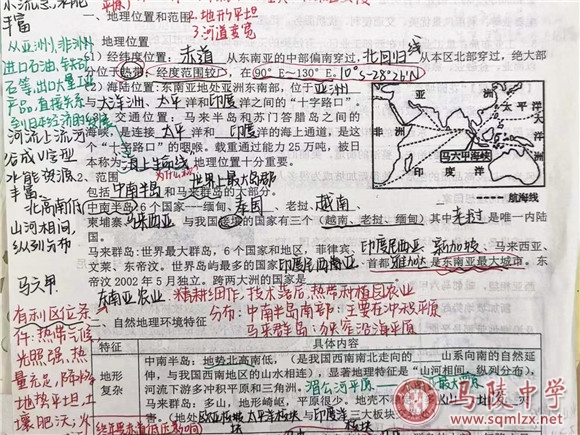 小流急,未能
丰富
从亚洲、非洲
进口石油、铁矿
石等,出口大量工业
产品,直接关系
到日本经济的发展
河流上流河
谷成V字型
水能资源
丰富.
北高南低
山河相间,
纵列分布
马六甲
有利区位条
件:热带气候
光照强、热
量充足,降水多
地势平坦,土
壤肥沃,水
2.地形平坦
3.河道变宽
一、地理位置和范围
1、地理位置
(1) 经纬度位置:赤道 从东亚南的中部偏南穿过,北回归线 从本区北部穿过,绝大部
分位于热带,经度范围较广,在90°E~130°E. 10°S-28°26′N
(2) 海陆位置:东南亚地处亚洲东南部,位于亚洲
与大洋洲、太平洋和印度洋之间的“十字路口”。
(3) 交通位置:马来半岛和苏门答腊岛之间的
海峡,是连接太平洋和印度洋的海上通道,是这
个“十字路口”的咽喉。载重通过能力25万吨,被日
本本称为海上生命线,地理位置十分重要。
2、范围
世界上最大岛群
包括中南半岛和马来群岛的大部分。
(中南半岛)6个国家——缅甸、泰国、老挝、越南、
柬埔寨、马来西亚,与我国接壤的国家有三个(越南、老挝、缅甸)其中老挝是唯一内陆
国。
马来群岛:世界最大群岛,6个国家和地区,菲律宾、印度尼西亚、新加坡、马来西亚、
文莱、东帝汶。世界岛屿最多的国家印度尼西亚,首都雅加达是东南亚最大城市。东
帝汶2002年5月独立。跨两大洲的国家是
东南亚农业 精耕细作,技术落后,热带种植园农业
分布:中南半岛南部:主要在冲积平原
马来群岛:狭窄沿海平原
二、自然地理环境特征
特征 具体内容
地形
复杂
中南半岛:地势北高南低,(是我国西南南北走向的 山系向南的自然延
伸,与我国西南地区的山水相连),显著地理特征是“山河相间、纵列分布”。
河流下游多冲积平原和三角洲。湄公河平原——最大
马来群岛:多山,地形崎岖,平原很少。地壳不
(地处亚欧板块、太平洋板块与印度洋三大板块
亚
非
洲
洲
太
平
洋
印度洋
马六甲海峡
航海线
马陵中学
www.sqmlzx.net